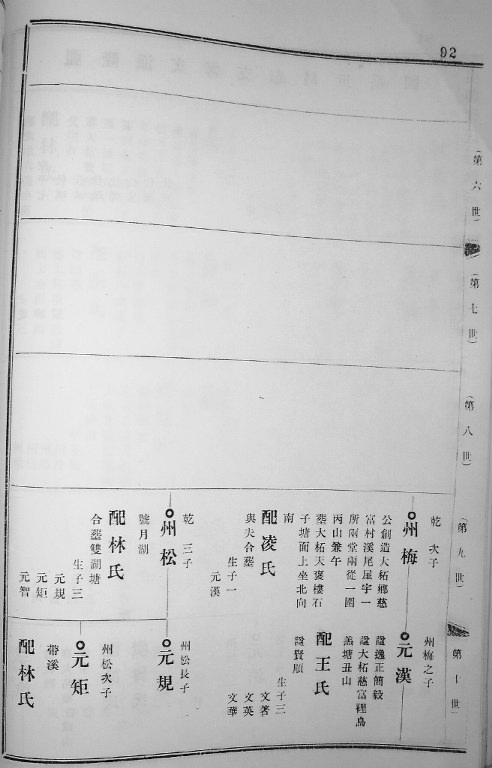 92
(第六世)
(第七世)
(第八世)
(第九世)
第十世)
乾 次子
州梅
公創造大柘鄉慈
富村溪尾屋宇一
所兩堂兩從一圍
丙山兼午
塟大柘天褒樓石
子塘面上坐北向
南
配凌氏
與夫合墓
生子一
元漢
乾 三子
州松
號月湖
配林氏
合墓雙湖塘
生子三
元規
元矩
元智
州梅之子
元漢
諡逸正簡毅
塟大柘慈富裡鳥
羔塘丑山
配王氏
諡賢順
生子三
文著
文英
文華
州松長子
元規
州松次子
元矩
帶溪
配林氏